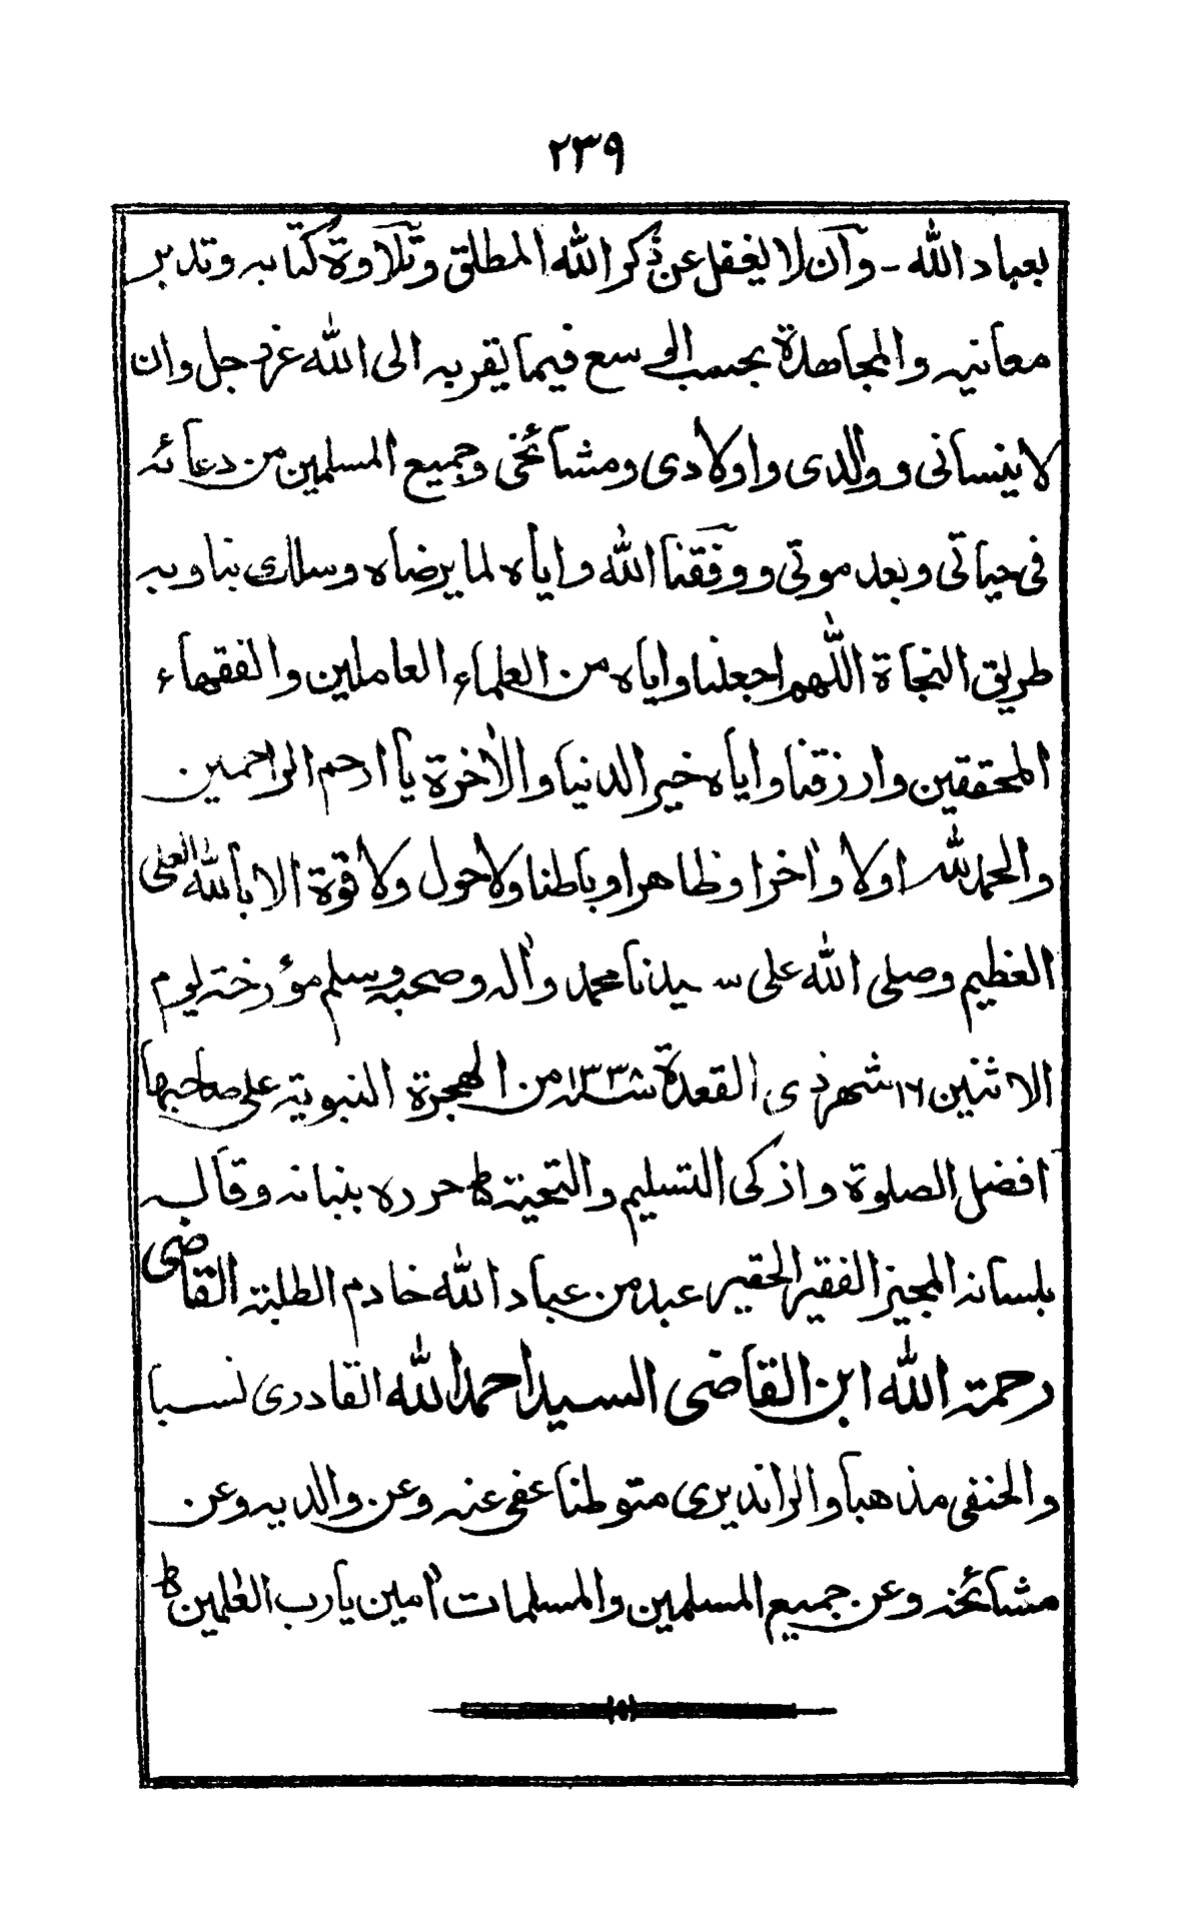 ٢٣٩
بعباد الله - وآن لا يغفل عن ذكر الله المطلق وتلاوة كتابه وتدبر
معانيه والمجاهدة بحسب الوسع فيما يقربه الى الله عز وجل وان
لا ينسانى ووالدى واولادى ومشائخى وجميع المسلمين من دعائه
فى حياتى وبعد موتى ووفقنا الله واياه لما يرضاه وسلك بنا وبه
طريق النجاة اللهم اجعلنا واياه من العلماء العاملين والفقهاء
المحققين وارزقنا واياه خير الدنيا والاخرة يا ارحم الراحمين
والحمد لله اولا واٰخرا وظاهرا وباطنا ولا حول ولا قوة الا بالله العلى
العظيم وصلى الله على سيدنا محمد واٰله وصحبه وسلم مؤرخة ليوم
الاثنين ١٦ شهر ذى القعدة سنة ١٣٣٨ من الهجرة النبوية على صاحبها
افضل الصلوة واذكى التسليم والتحية ط حرره ببنانه وقاله
بلسانه المجيز الفقير الحقير عبد من عباد الله خادم الطلبة القاضى
رحمة الله ابن القاضى السيد احمد الله القادرى نسبا
والحنفى مذهبا والراندیرى متوطنا عفى عنه وعن والديه وعن
مشائخه وعن جميع المسلمين والمسلمات اٰمين يا رب العٰلمين ط